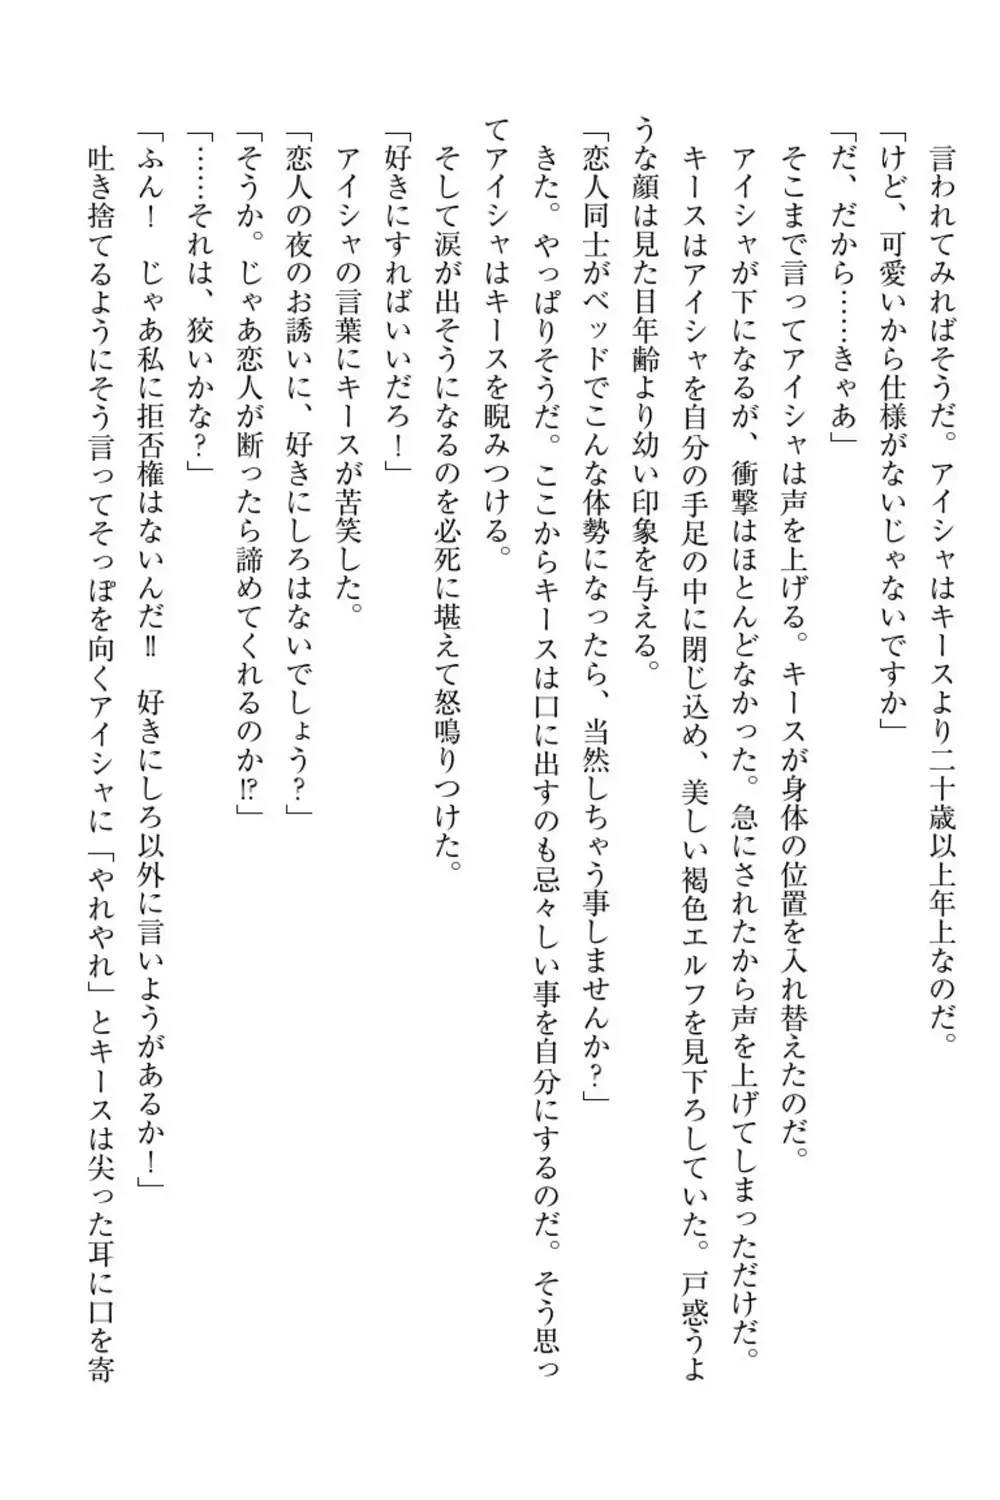 言われてみればそうだ。アイシャはキースより二十歳以上年上なのだ。
「けど、可愛いから仕様がないじゃないですか」
「だ、だから……きゃあ」
そこまで言ってアイシャは声を上げる。キースが身体の位置を入れ替えたのだ。
アイシャが下になるが、衝撃はほとんどなかった。急にされたから声を上げてしまっただけだ。
キースはアイシャを自分の手足の中に閉じ込め、美しい褐色エルフを見下ろしていた。戸惑うよ
うな顔は見た目年齢より幼い印象を与える。
「恋人同士がベッドでこんな体勢になったら、当然しちゃう事しませんか?」
きた。やっぱりそうだ。ここからキースは口に出すのも忌々しい事を自分にするのだ。そう思っ
てアイシャはキースを睨みつける。
そして涙が出そうになるのを必死に堪えて怒鳴りつけた。
「好きにすればいいだろ!」
アイシャの言葉にキースが苦笑した。
「恋人の夜のお誘いに、好きにしろはないでしょう?」
「そうか。じゃあ恋人が断ったら諦めてくれるのか⁉」
「……それは、狡いかな?」
「ふん! じゃあ私に拒否権はないんだ‼ 好きにしろ以外に言いようがあるか!」
吐き捨てるようにそう言ってそっぽを向くアイシャに「やれやれ」とキースは尖った耳に口を寄